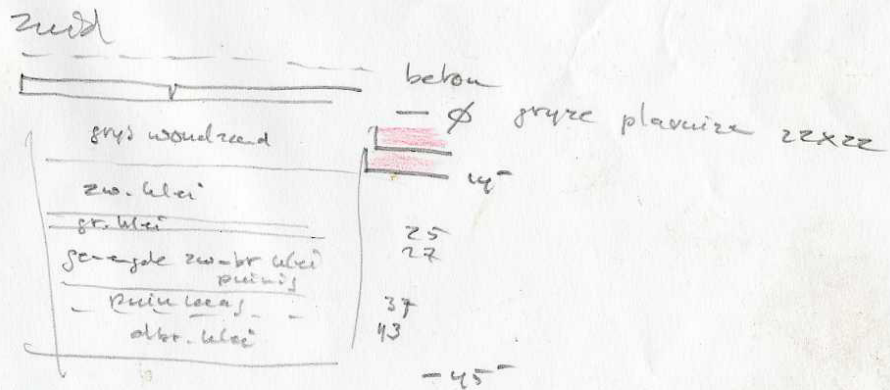 zuid
beton
— Ø gryze plavuize 22x22
grys woudzand
14-
zw. klei
gr. klei
25
gemengde zw-br klei
27
puinig
puin laag
37
dbr. klei
43
- 45 -